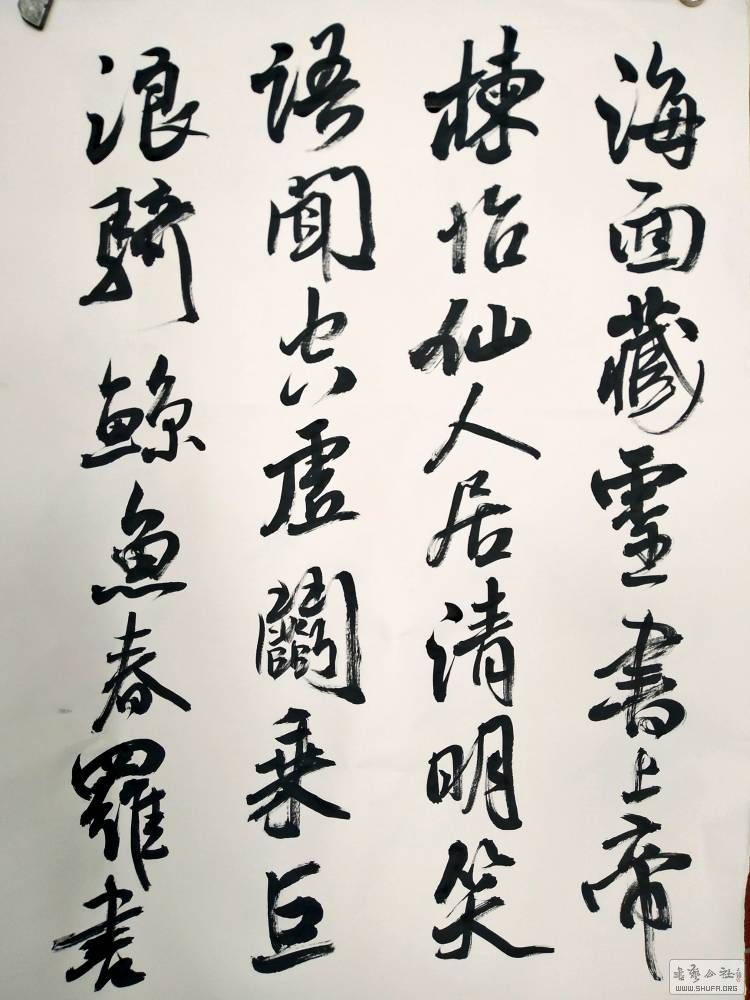 海面藏靈書上帝
揀仙人居清明笑
語聞空虛鬭乘巨
浪騎鯨魚春羅書
书艺公社
WWW.SHUFA.ORG